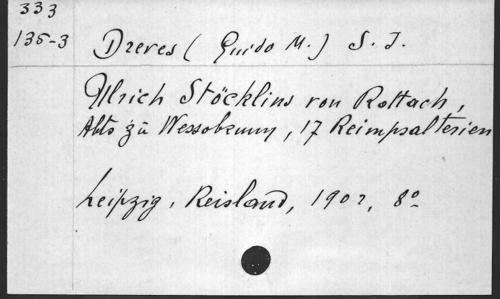 333
135-3 Dreves ( Guido M. ) S. J.
Ulrich Stöcklins von Rottach,
Abts zu Wessobrunn, 17 Reimpsalterien
Leipzig, Reisland, 1902, 8º